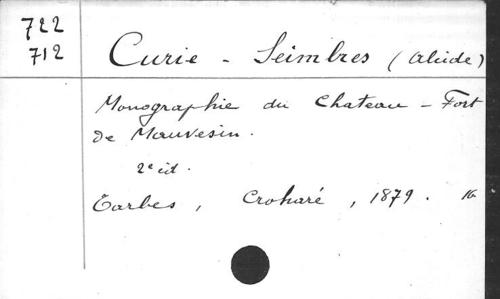 722
712
Curie - Seimbres (Alcide)
Monographie du Chateau - Fort
de Mauvesin.
2e éd.
Tarbes, Croharé, 1879. 16